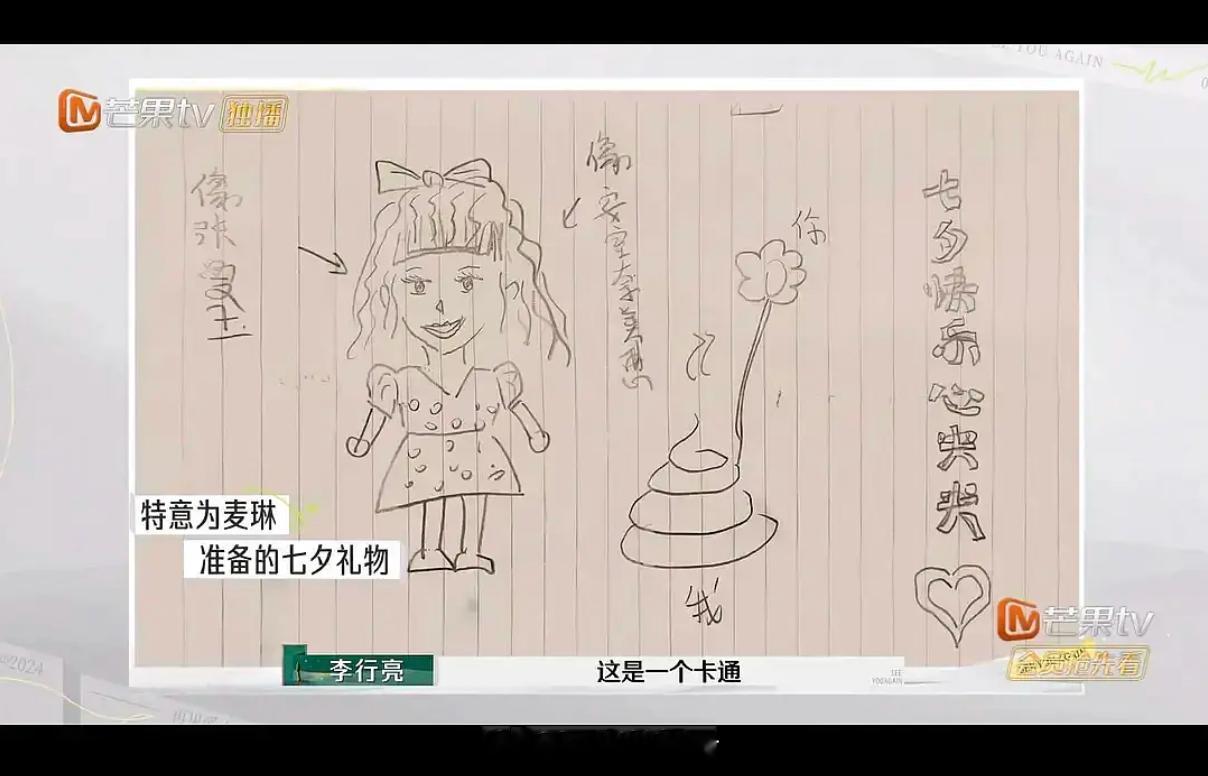 YOU AGAIN
芒果tv 独播
像张曼玉
像安室奈美惠
你
我
七夕快乐心央央
特意为麦琳
准备的七夕礼物
李行亮
这是一个卡通
SEE
YOU AGAIN
芒果tv
会员抢先看
2024